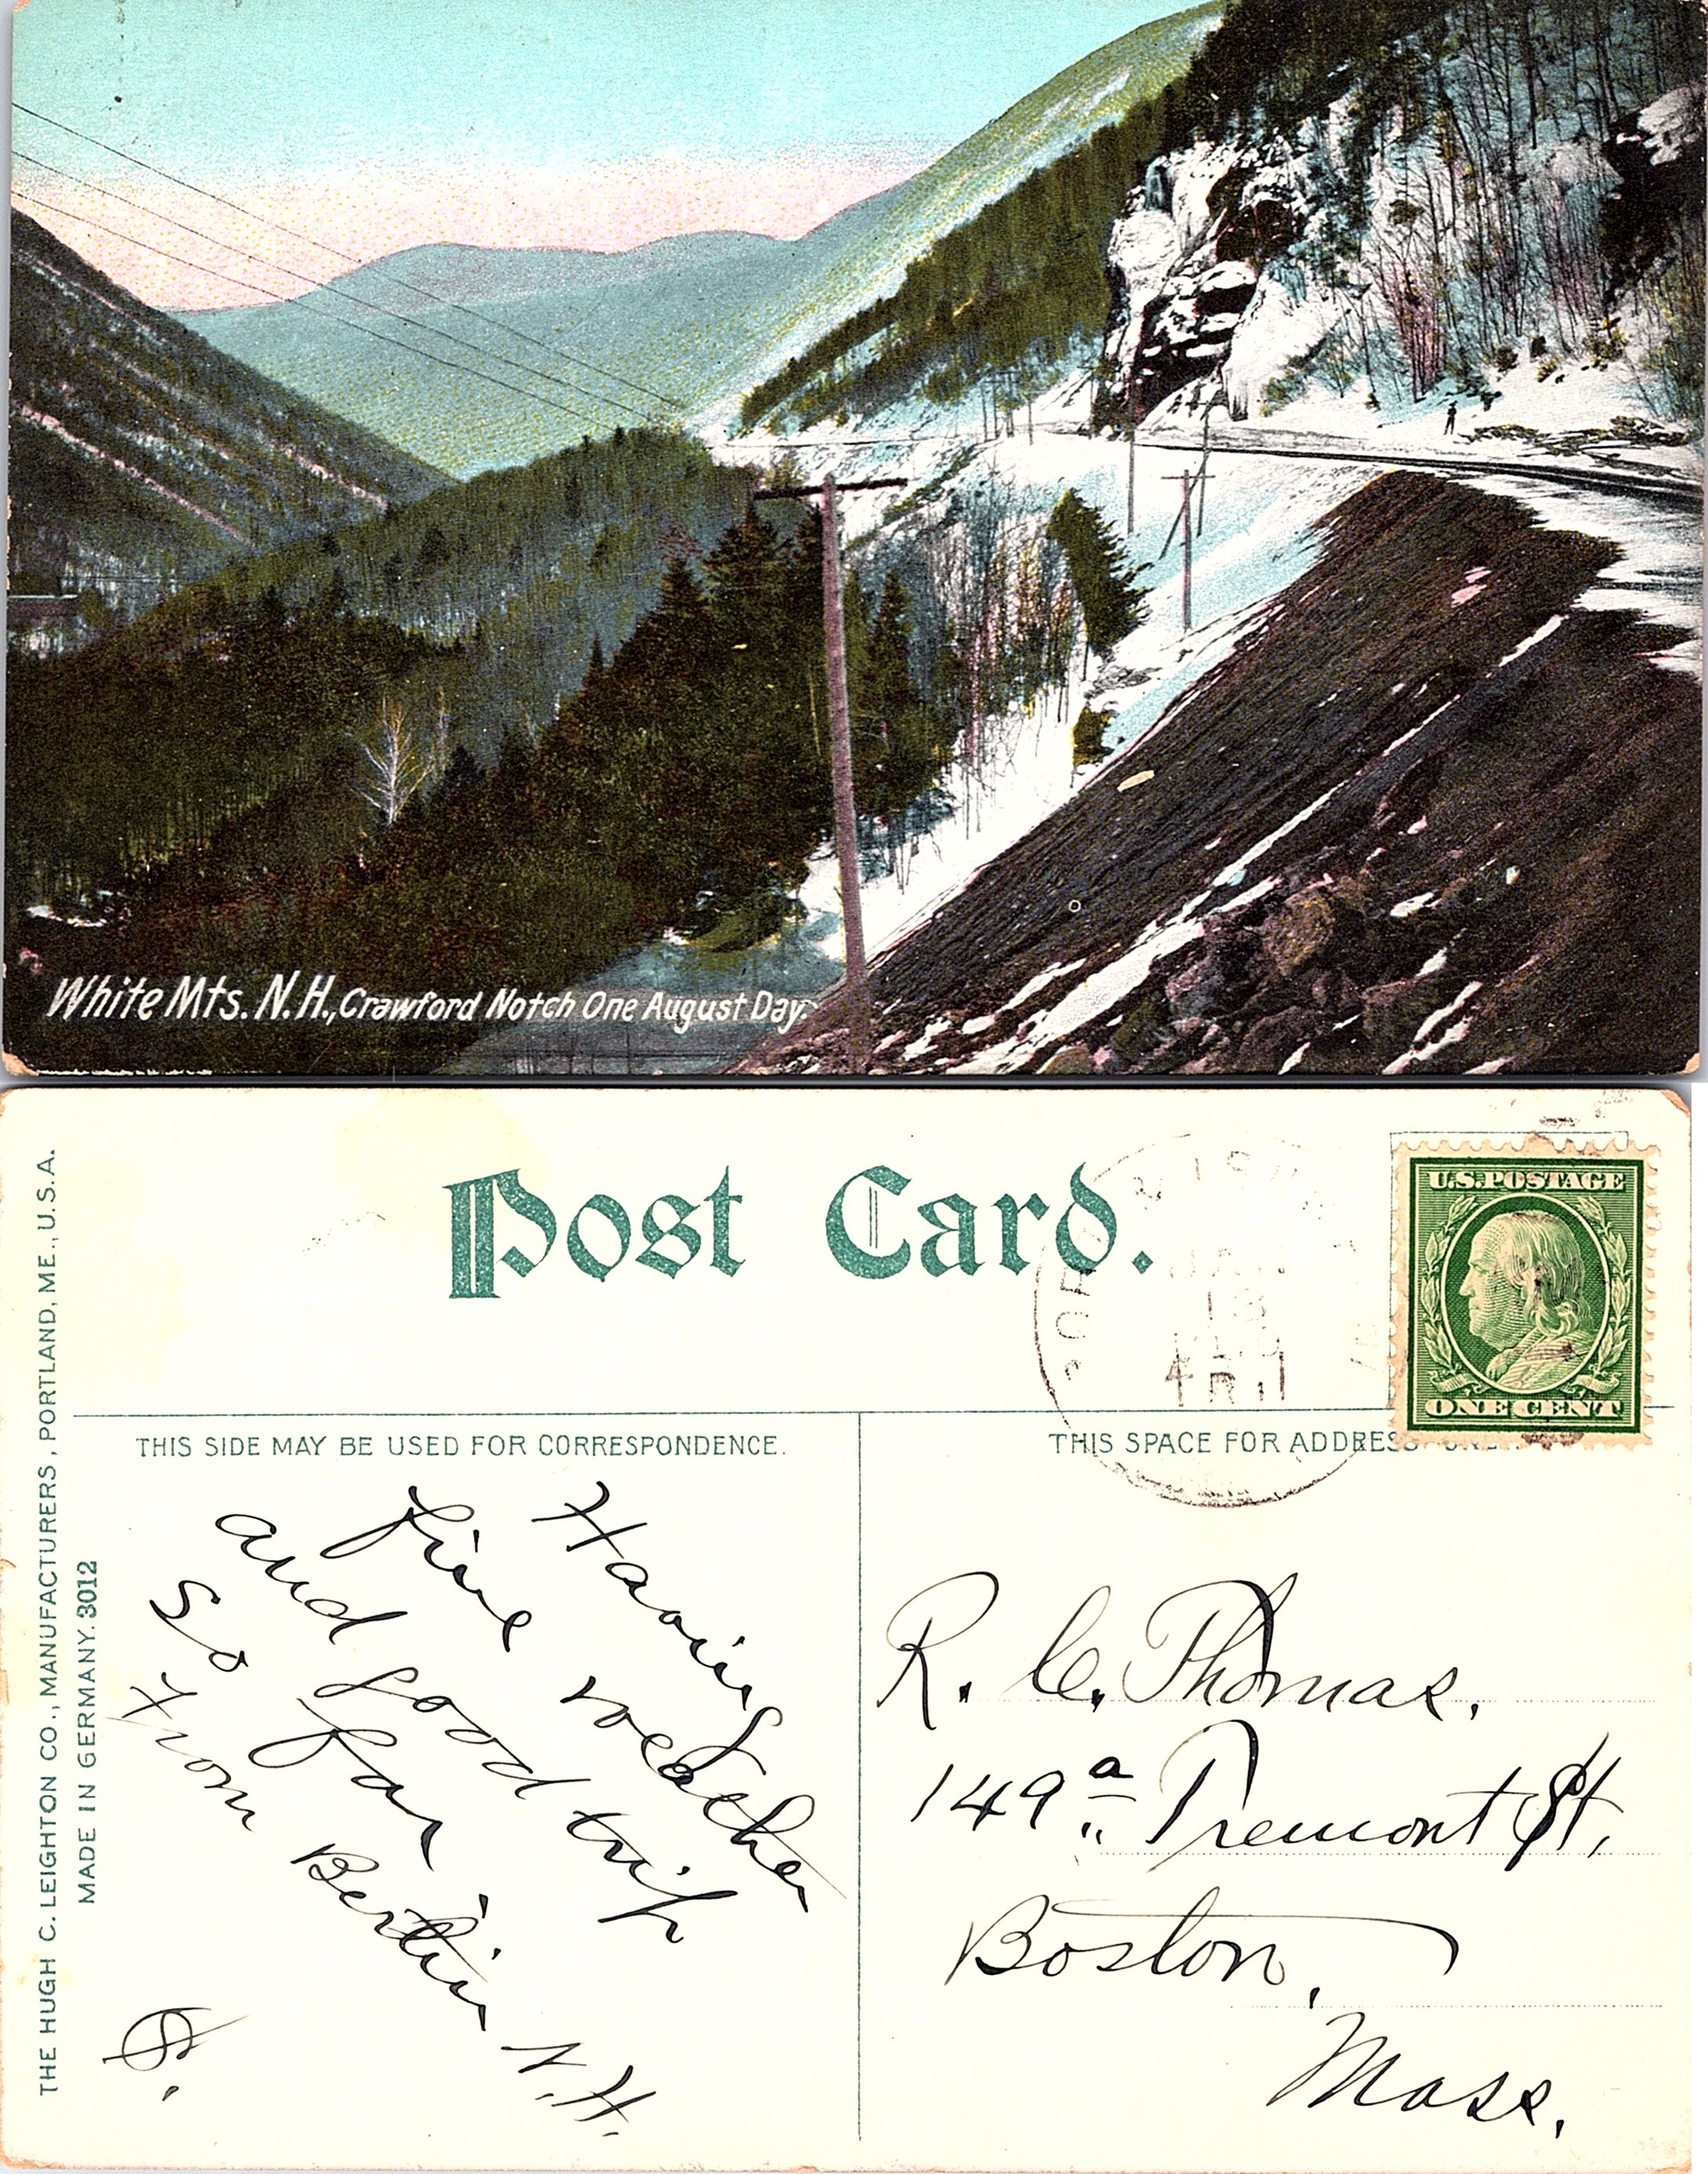 White Mts. N.H., Crawford Notch One August Day.
Post Card.
U.S. POSTAGE
ONE CENT
JAN
18
THIS SIDE MAY BE USED FOR CORRESPONDENCE.
THIS SPACE FOR ADDRESS ONLY.
THE HUGH C. LEIGHTON CO., MANUFACTURERS, PORTLAND, ME., U.S.A.
MADE IN GERMANY. 3012
Having
fine weather
and good trip
so far
from Berlin N.H.
S.
R. C. Thomas.
149 a Tremont St.
Boston,
Mass.